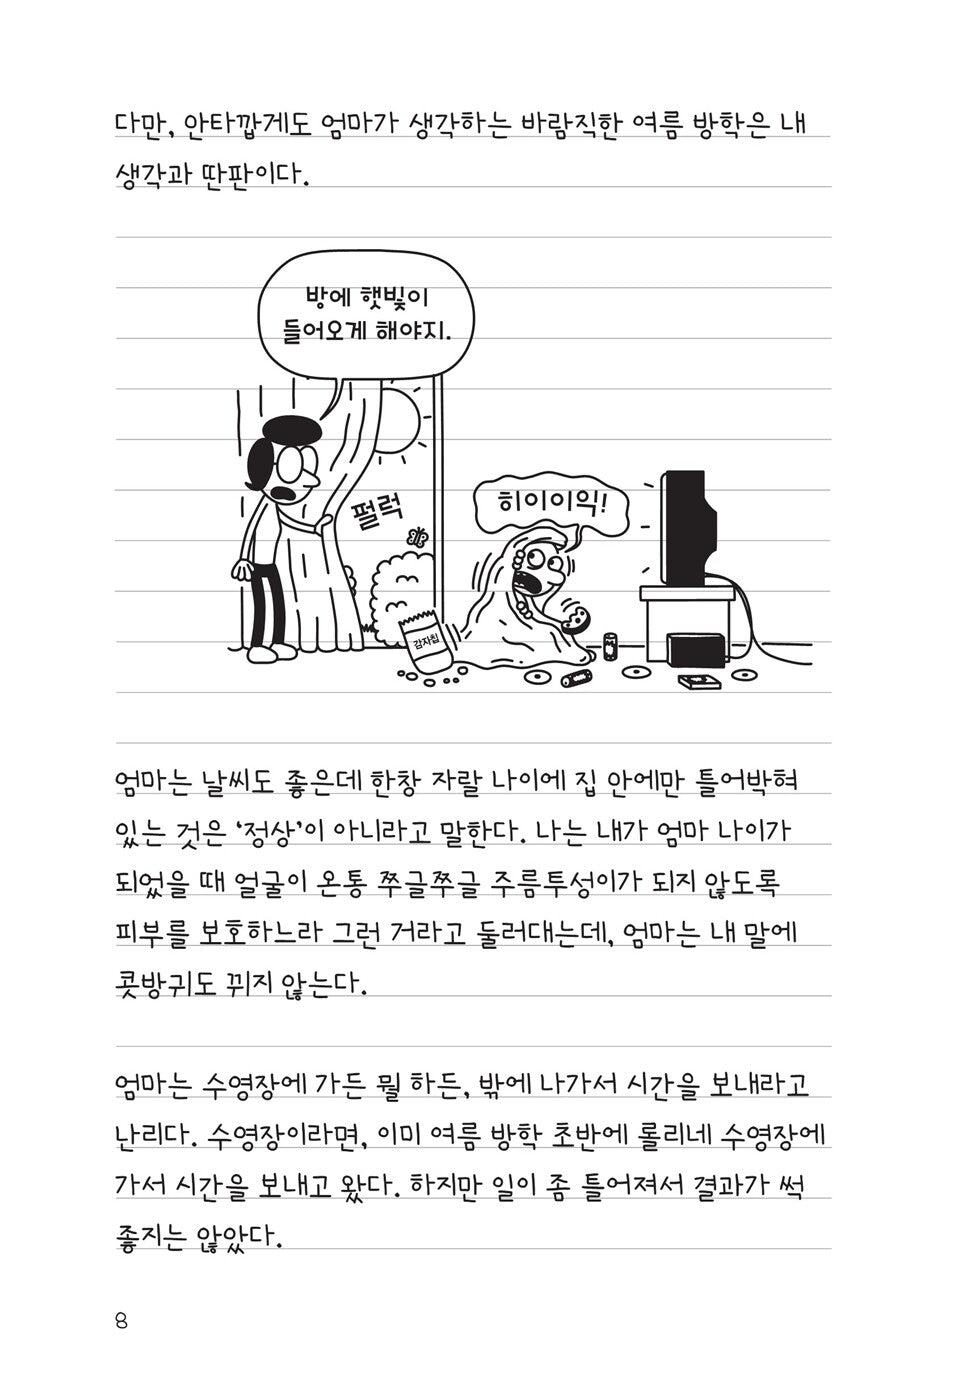 다만, 안타깝게도 엄마가 생각하는 바람직한 여름 방학은 내
생각과 딴판이다.
방에 햇빛이
들어오게 해야지.
펄럭
히이이익!
감자칩
엄마는 날씨도 좋은데 한창 자랄 나이에 집 안에만 틀어박혀
있는 것은 ‘정상’이 아니라고 말한다. 나는 내가 엄마 나이가
되었을 때 얼굴이 온통 쭈글쭈글 주름투성이가 되지 않도록
피부를 보호하느라 그런 거라고 둘러대는데, 엄마는 내 말에
콧방귀도 뀌지 않는다.
엄마는 수영장에 가든 뭘 하든, 밖에 나가서 시간을 보내라고
난리다. 수영장이라면, 이미 여름 방학 초반에 롤리네 수영장에
가서 시간을 보내고 왔다. 하지만 일이 좀 틀어져서 결과가 썩
좋지는 않았다.
8